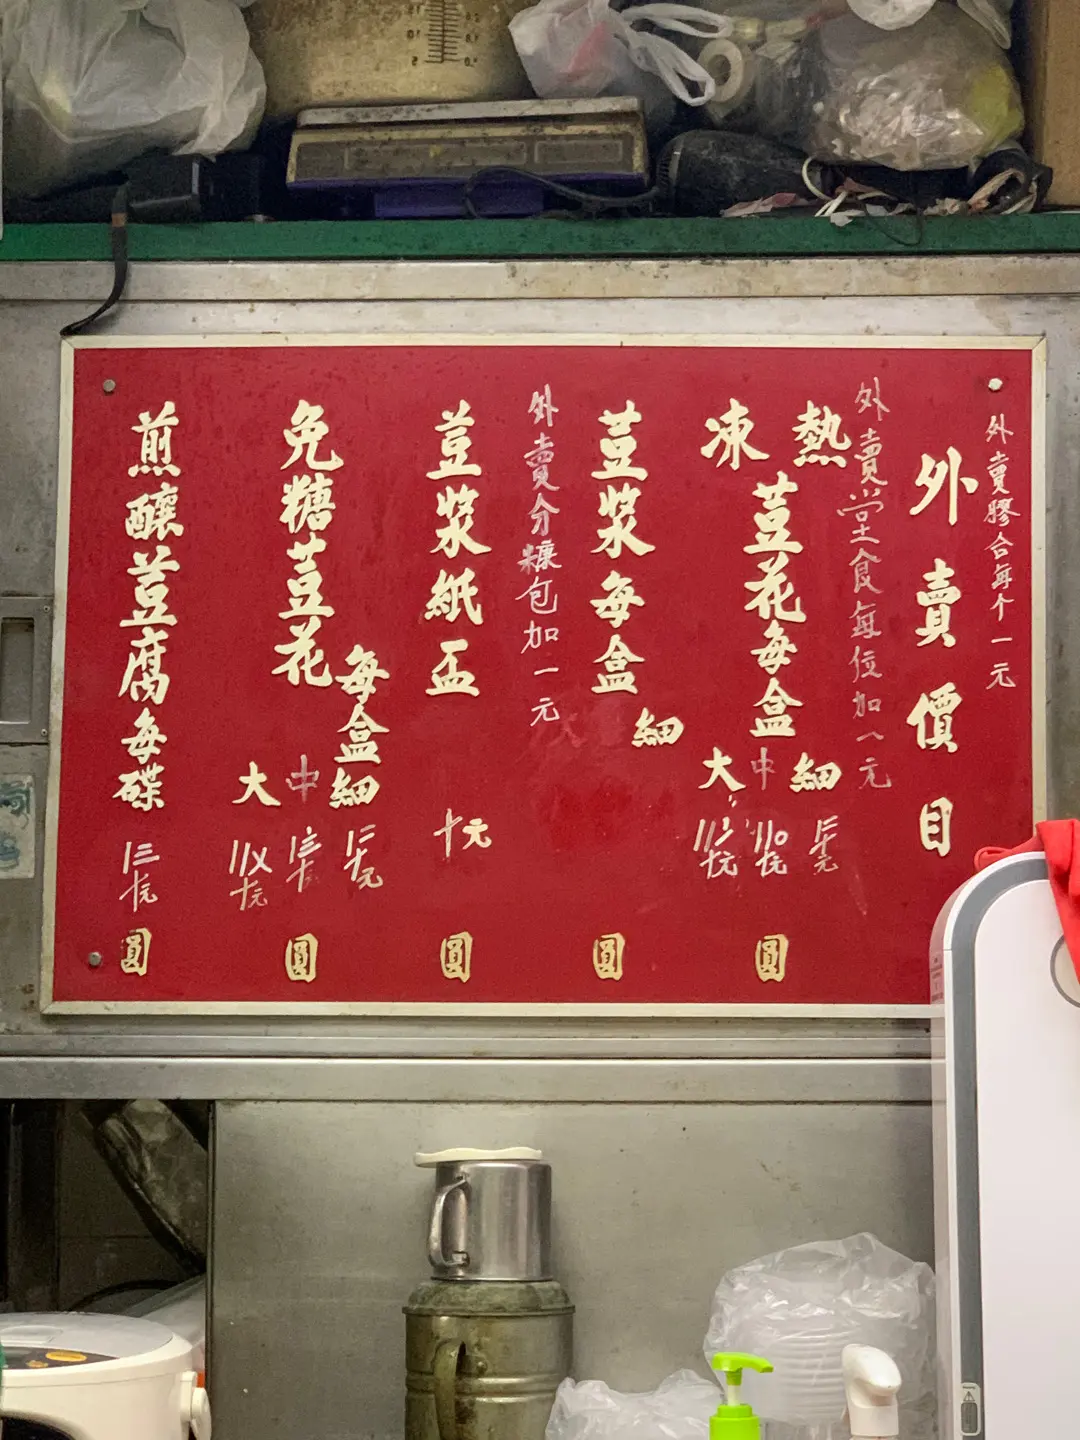 外賣膠合每个一元
外賣價目
外賣堂食每位加一元
熱
凍
荳花每盒
細
中
大
元
元
元
圓
荳漿每盒
細
圓
外賣分糖包加一元
荳漿紙盃
十元
圓
免糖荳花
每盒
細
中
大
元
元
圓
煎釀荳腐每碟
〡三
十元
圓